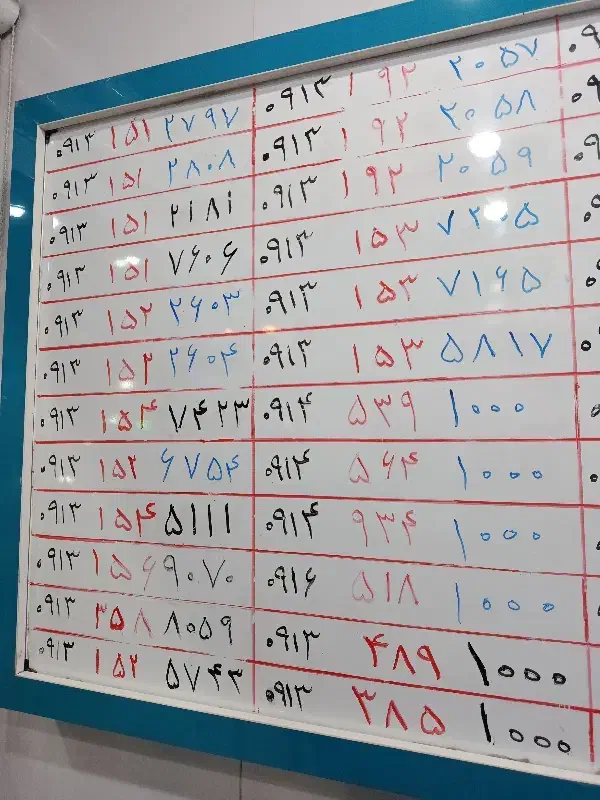 ۰۹۱۳ ۱۵۱ ۲۷۹۷
۰۹۱۳ ۱۵۱ ۲۸۰۸
۰۹۱۳ ۱۵۱ ۲۱۸۱
۰۹۱۳ ۱۵۱ ۷۶۰۶
۰۹۱۳ ۱۵۲ ۲۶۰۳
۰۹۱۳ ۱۵۲ ۲۶۰۴
۰۹۱۳ ۱۵۴ ۷۴۲۳
۰۹۱۳ ۱۵۲ ۶۷۵۴
۰۹۱۳ ۱۵۴ ۵۱۱۱
۰۹۱۳ ۱۵۶ ۹۰۷۰
۰۹۱۳ ۳۵۸ ۸۰۵۹
۰۹۱۳ ۱۵۲ ۵۷۴۳
۰۹۱۳ ۱۹۲ ۲۰۵۷
۰۹۱۳ ۱۹۲ ۲۰۵۸
۰۹۱۳ ۱۹۲ ۲۰۵۹
۰۹۱۳ ۱۵۳ ۷۲۰۵
۰۹۱۳ ۱۵۳ ۷۱۶۵
۰۹۱۳ ۱۵۳ ۵۸۱۷
۰۹۱۴ ۵۳۹ ۱۰۰۰
۰۹۱۴ ۵۶۴ ۱۰۰۰
۰۹۱۴ ۹۳۴ ۱۰۰۰
۰۹۱۶ ۵۱۸ ۱۰۰۰
۰۹۱۳ ۴۸۹ ۱۰۰۰
۰۹۱۳ ۳۸۵ ۱۰۰۰